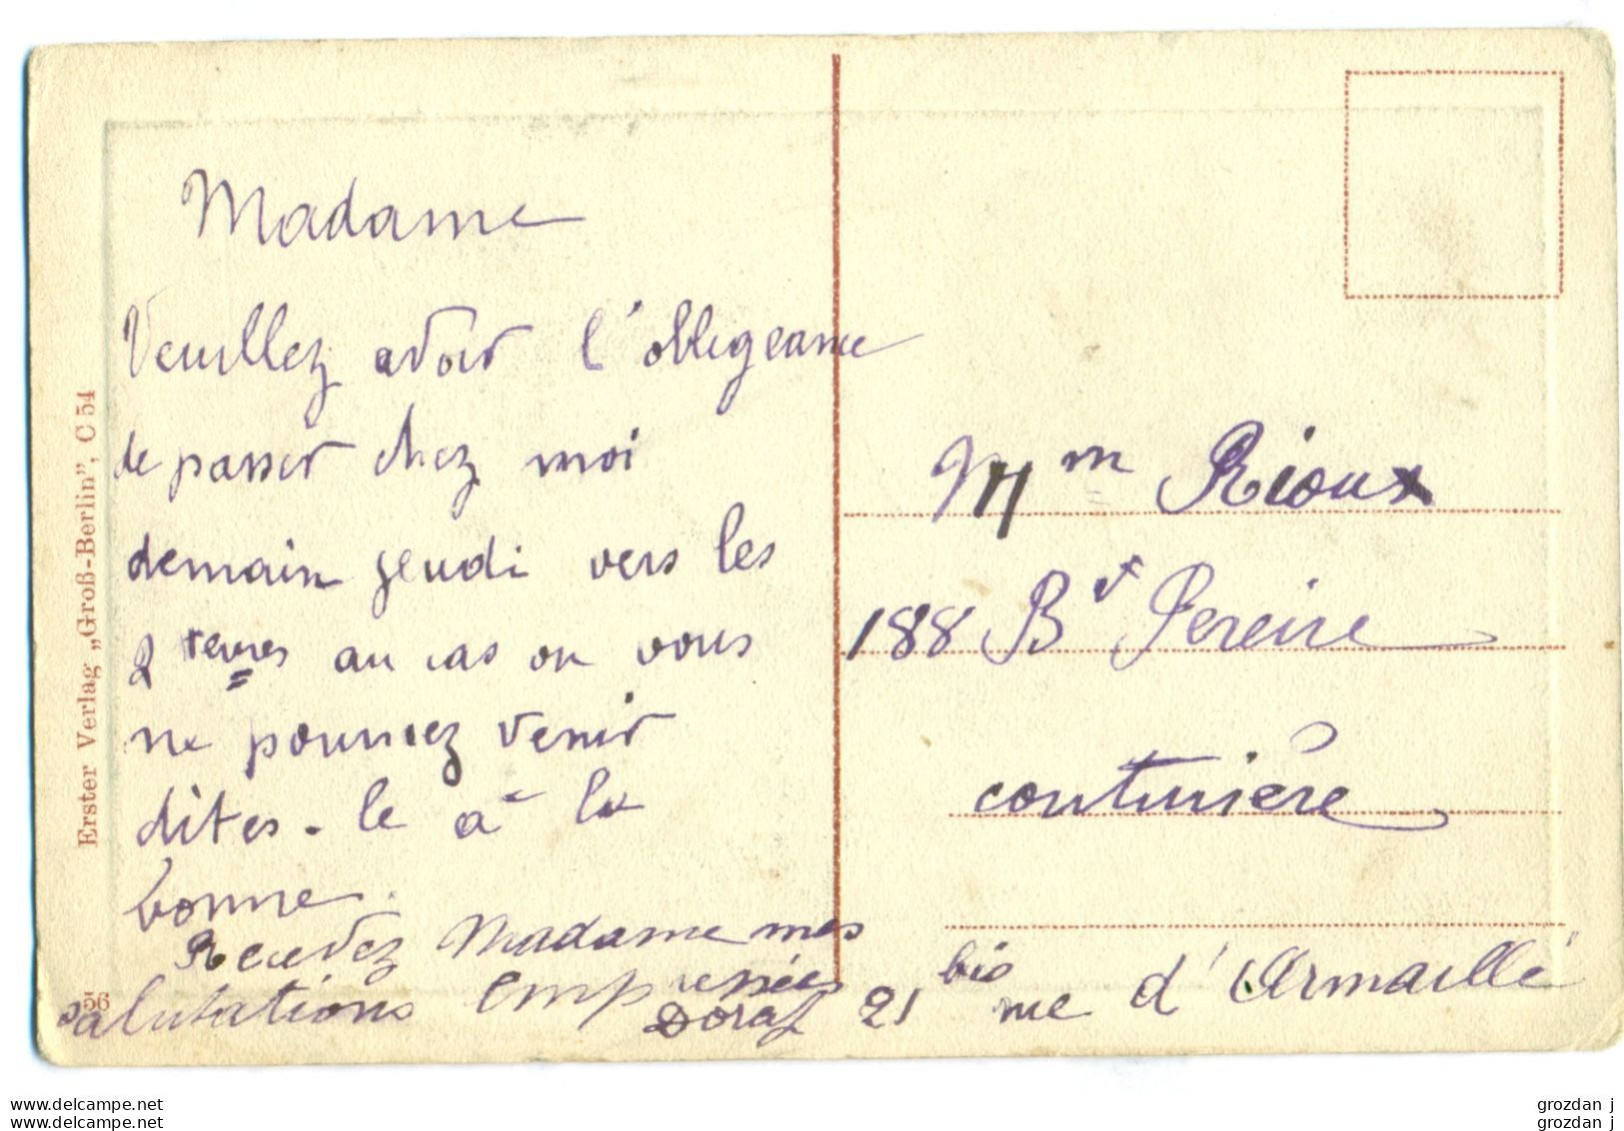 Madame
Veuillez avoir l'obligeance
de passer chez moi
demain jeudi vers les
2 heures au cas où vous
ne pourriez venir
dites-le à la
bonne.
Recevez Madame mes
salutations empressées
21 bis rue d'Armaillé
Mm Rioux
188 Bd Pereire
couturière
Erster Verlag „Groß-Berlin”, C 54
56
www.delcampe.net
www.delcampe.net
grozdan j
grozdan j